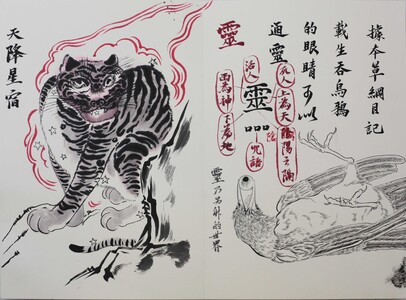 據本草綱目記
載生吞烏鴉
的眼睛可以
通靈
靈
死人
上為天
陰陽之隔
靈
品
咒語
活人
雨為神
下為地
靈乃另外的世界
天降星宿